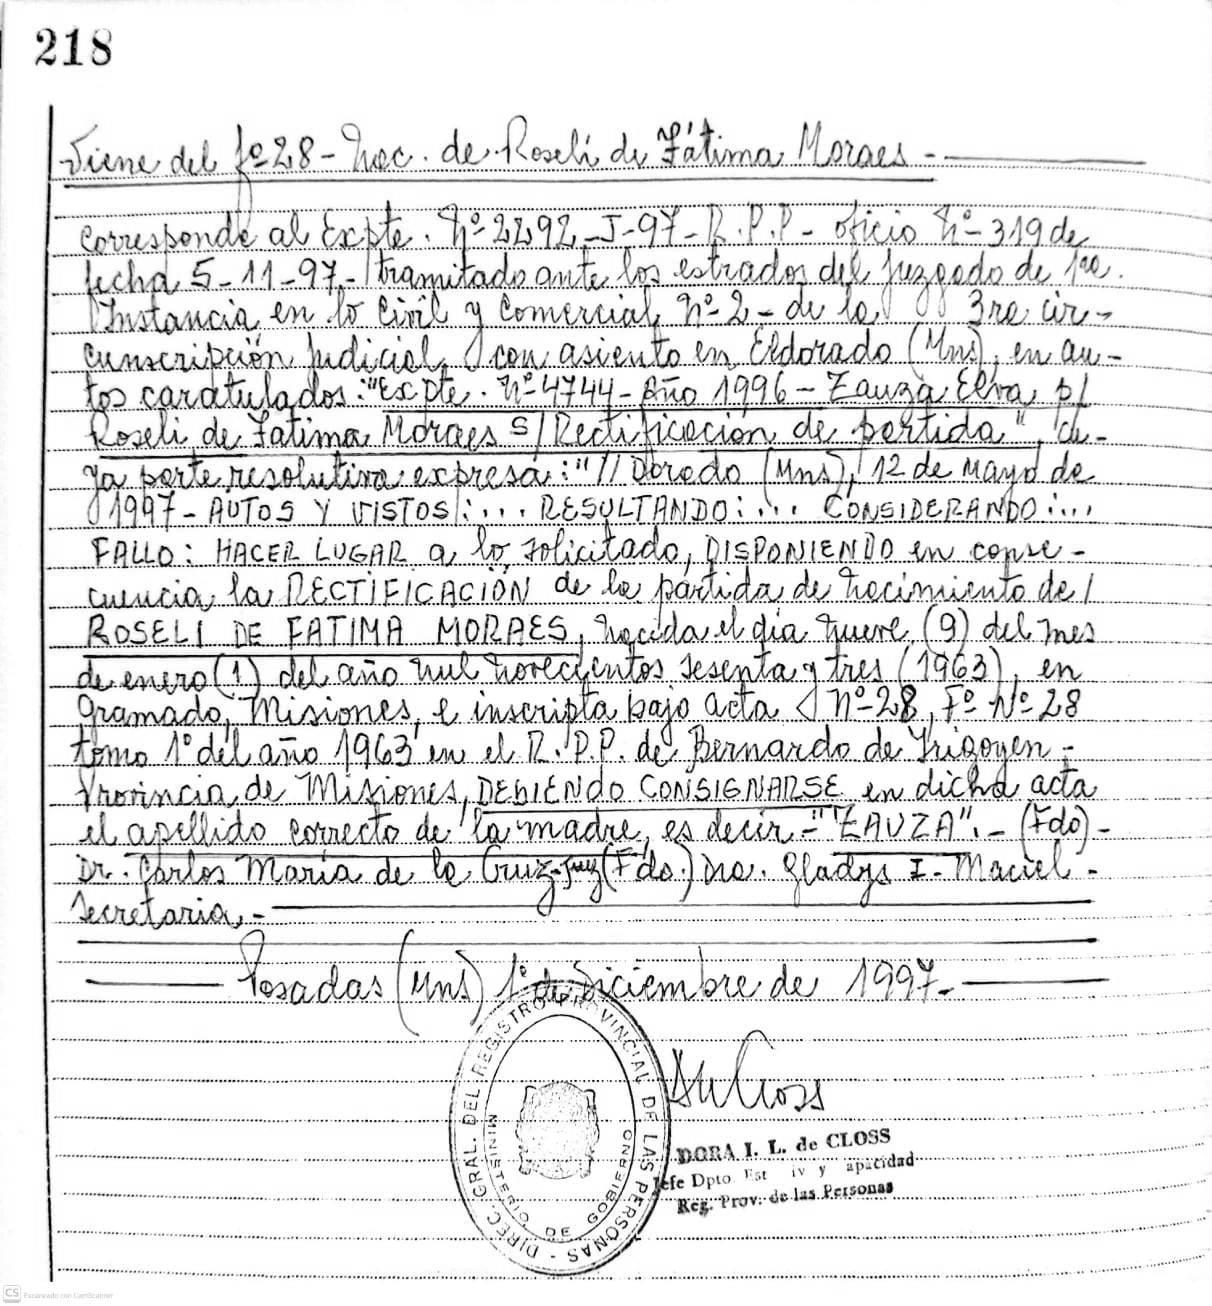 218
Viene del fº 28 - Nac. de Roselí de Fátima Moraes -
corresponde al Expte. Nº 2292-J-97-R.P.P- oficio Nº-319 de
fecha 5-11-97- tramitado ante los estrados del juzgado de 1ra.
Instancia en lo Civil y Comercial Nº-2- de la 3ra cir-
cunscripción judicial, con asiento en Eldorado (Mns), en au-
tos caratulados: "Expte. Nº-4744- Año 1996 - Zauza Elva p/
Roseli de Fatima Moraes s/Rectificación de partida", cu-
ya parte resolutiva expresa: "//Dorado (Mns), 12 de Mayo de
1997- AUTOS Y VISTOS:... RESULTANDO:... CONSIDERANDO:...
FALLO: HACER LUGAR a lo solicitado, DISPONIENDO en conse-
cuencia la RECTIFICACIÓN de la partida de nacimiento de /
ROSELI DE FATIMA MORAES, nacida el día nueve (9) del mes
de enero (1) del año mil novecientos sesenta y tres (1963), en
Gramado, Misiones, e inscripta bajo acta Nº-28, Fº Nº 28
tomo 1º del año 1963 en el R.P.P. de Bernardo de Irigoyen -
Provincia de Misiones, DEBIENDO CONSIGNARSE en dicha acta
el apellido correcto de la madre, es decir -"ZAUZA".- (Fdo)-
Dr. Carlos María de la Cruz-Juez (Fdo.) Dra. Gladys I. Maciel -
Secretaria.-
Posadas (Mns) 1º de Diciembre de 1997.-
DIREC. GRAL. DEL REGISTRO PROVINCIAL DE LAS PERSONAS -
MINISTERIO DE GOBIERNO
DORA I. L. de CLOSS
Jefe Dpto Est iv y apacidad
Reg. Prov. de las Personas
CS Escaneado con CamScanner